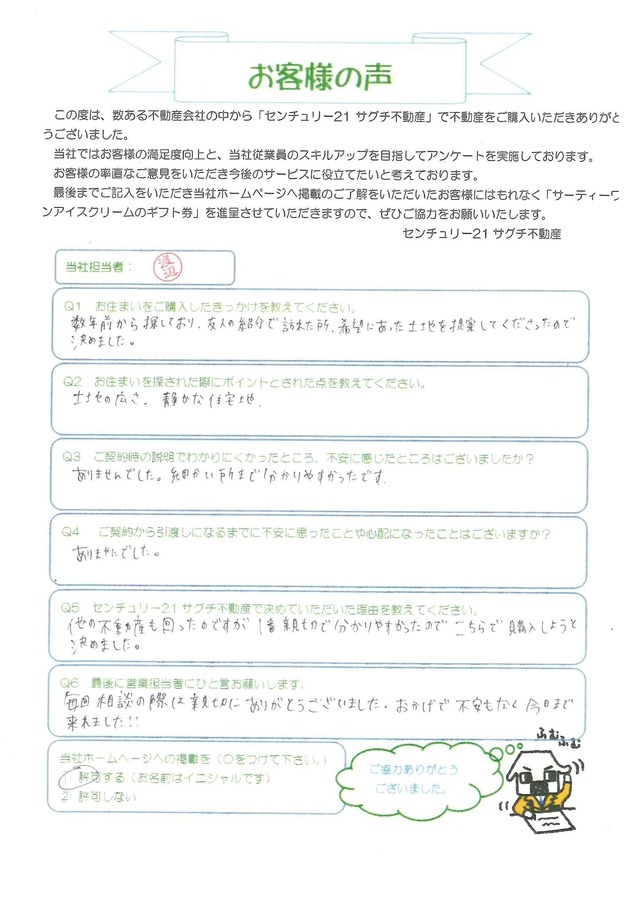 お客様の声
この度は、数ある不動産会社の中から「センチュリー21 サグチ不動産」で不動産をご購入いただきありがと
うございました。
当社ではお客様の満足度向上と、当社従業員のスキルアップを目指してアンケートを実施しております。
お客様の率直なご意見をいただき今後のサービスに役立てたいと考えております。
最後までご記入をいただき当社ホームページへ掲載のご了解をいただいたお客様にはもれなく「サーティーワ
ンアイスクリームのギフト券」を進呈させていただきますので、ぜひご協力をお願いいたします。
センチュリー21 サグチ不動産
当社担当者： 渡辺
Q1 お住まいをご購入したきっかけを教えてください。
数年前から探しており、友人の紹介で訪れた所、希望にあった土地を提案してくださったので
決めました。
Q2 お住まいを探された際にポイントとされた点を教えてください。
土地の広さ、静かな住宅地.
Q3 ご契約時の説明でわかりにくかったところ、不安に感じたところはございましたか？
ありませんでした。細かい所まで分かりやすかったです.
Q4 ご契約から引渡しになるまでに不安に思ったことや心配になったことはございますか？
ありませんでした。
Q5 センチュリー21 サグチ不動産で決めていただいた理由を教えてください。
他の不動産も回ったのですが1番親切で分かりやすかったのでこちらで購入しようと
決めました。
Q6 最後に営業担当者にひと言お願いします。
毎回相談の際は親切にありがとうございました。おかげで不安もなく今日まで
来れました!!
当社ホームページへの掲載を（〇をつけて下さい。）
1 許可する（お名前はイニシャルです）
2 許可しない
ご協力ありがとう
ございました。
ふむふむ